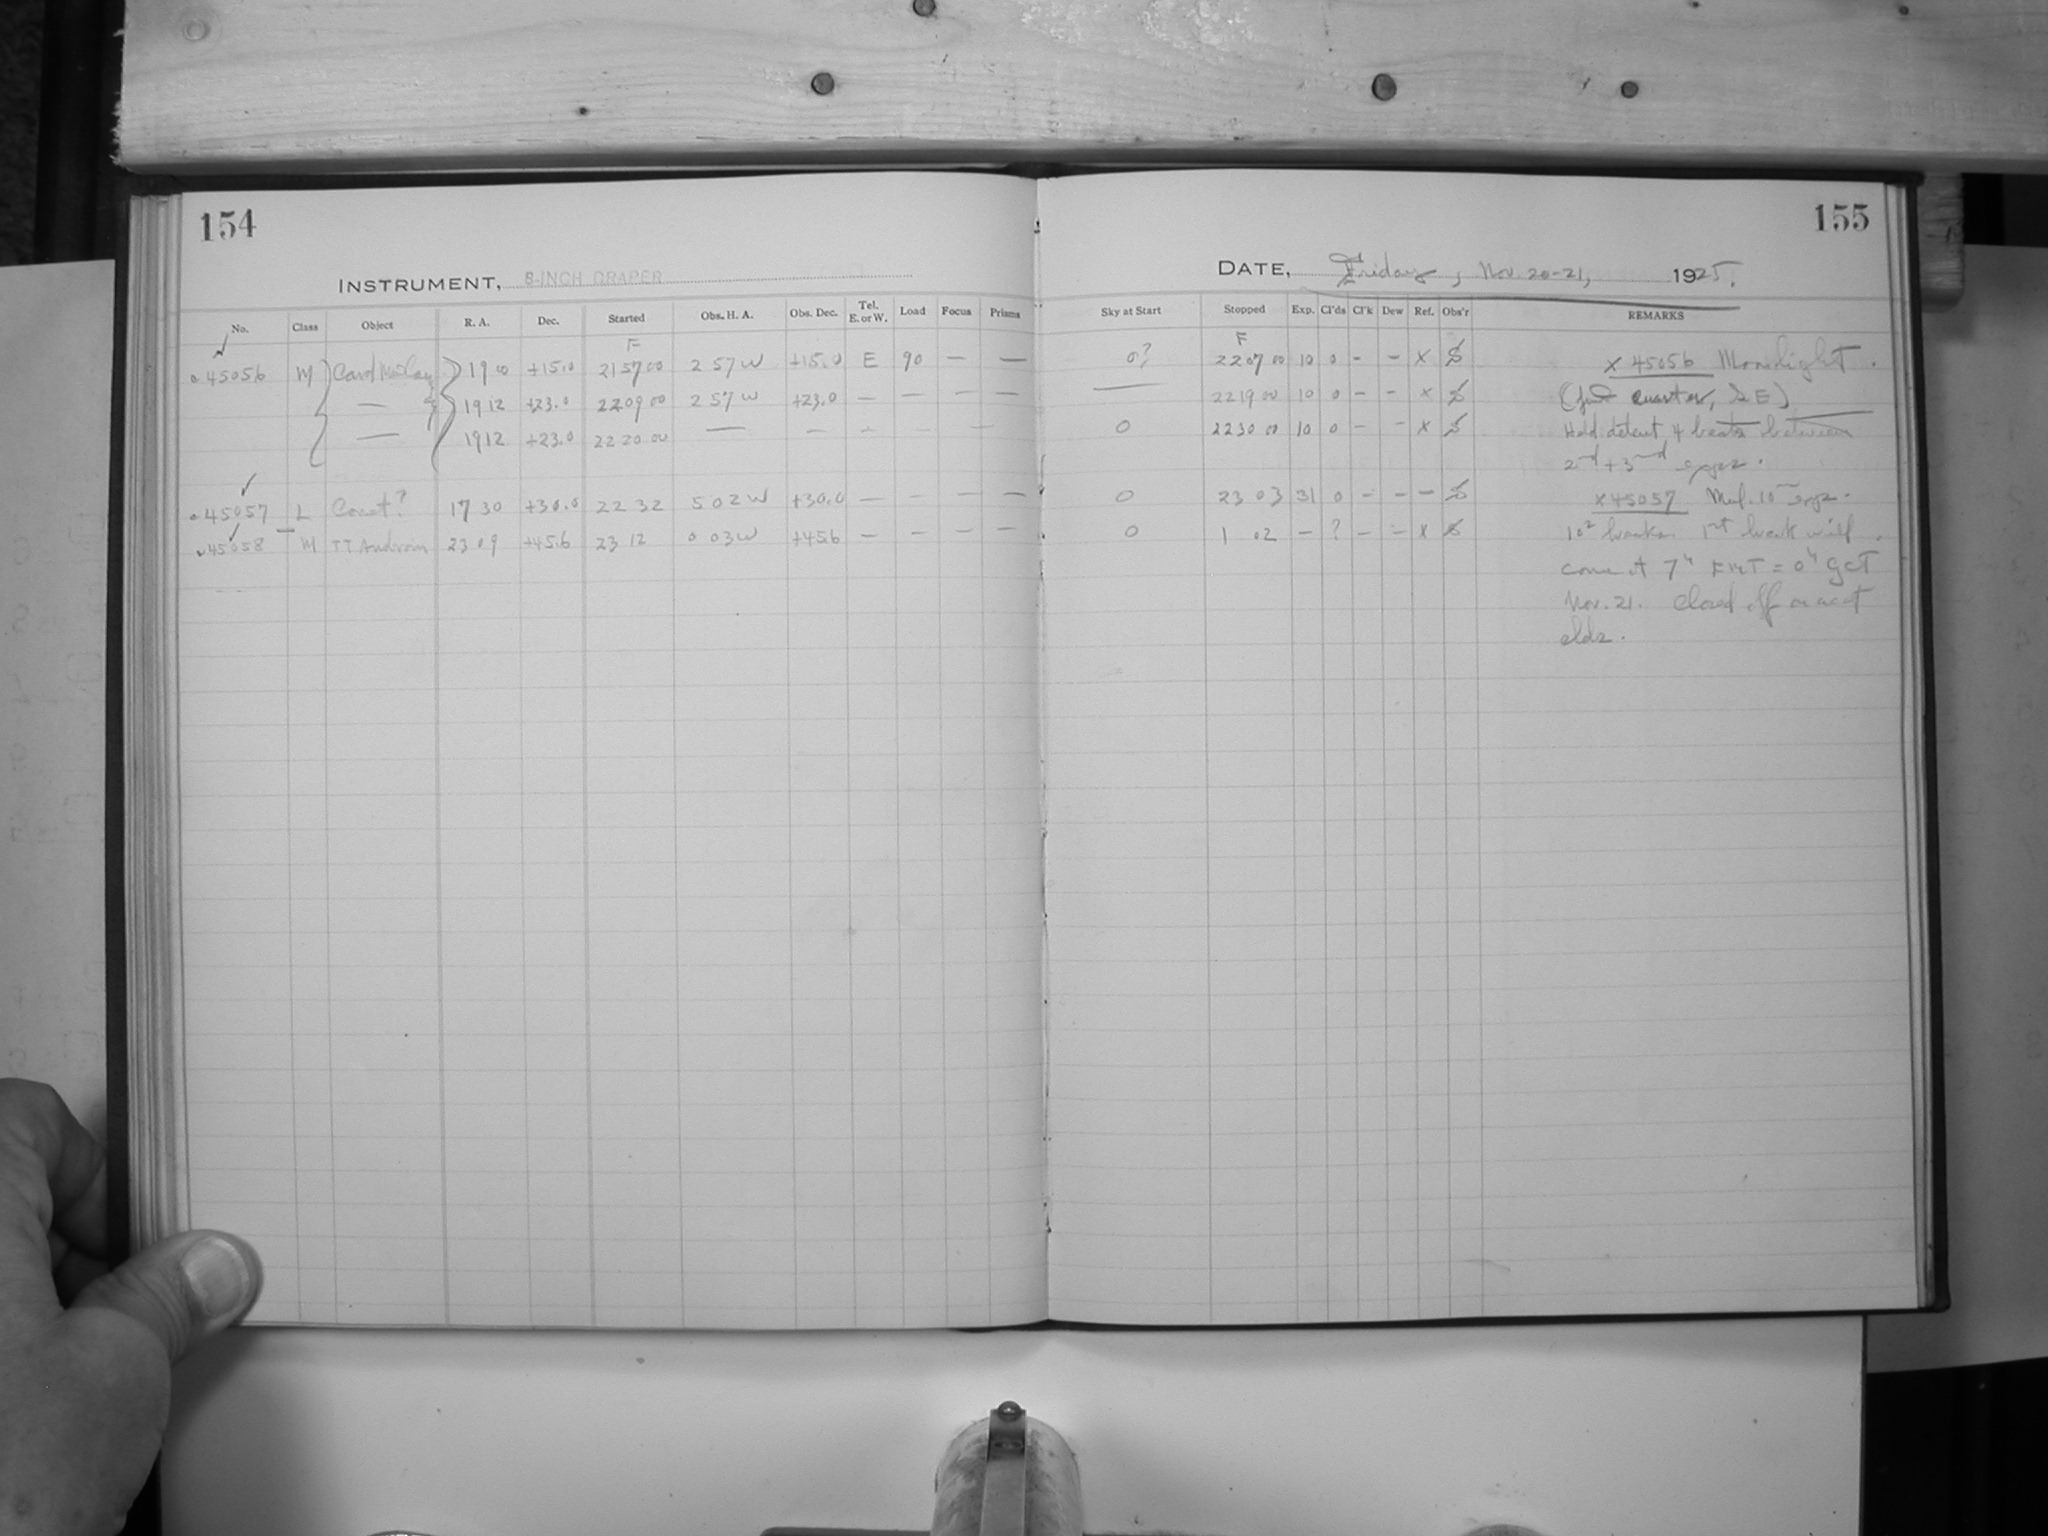 154
155
INSTRUMENT, 8-INCH DRAPER
DATE, Friday, Nov. 20-21, 1925.
No. Class Object R. A. Dec. Started Obs. H. A. Obs. Dec. Tel. E. or W. Load Focus Prisms
Sky at Start Stopped Exp. Cl'ds Cl'k Dew Ref. Obs'r REMARKS
F F
45056 M 19 00 +15.0 21 57 00 2 57 W +15.0 E 90 — — 0? 22 07 00 10 0 - - X X 45056 Moonlight.
— 19 12 +23.0 22 09 00 2 57 W +23.0 — — — — — 22 19 00 10 0 - - X quarter, E)
— 19 12 +23.0 22 20 00 — — — — — — 0 22 30 00 10 0 - - X Held detent 4 beats between
2nd + 3rd exps.
45057 L Comet? 17 30 +30.0 22 32 5 02 W +30.0 — — — — 0 23 03 31 0 - - - X 45057 10 exps.
45058 M TT Androm 23 09 +45.6 23 12 0 03 W +45.6 — — — — 0 1 02 — ? - - X breaks. 1st break will
come at 7h = 0h GCT
Nov. 21. Closed off on acct
clds.